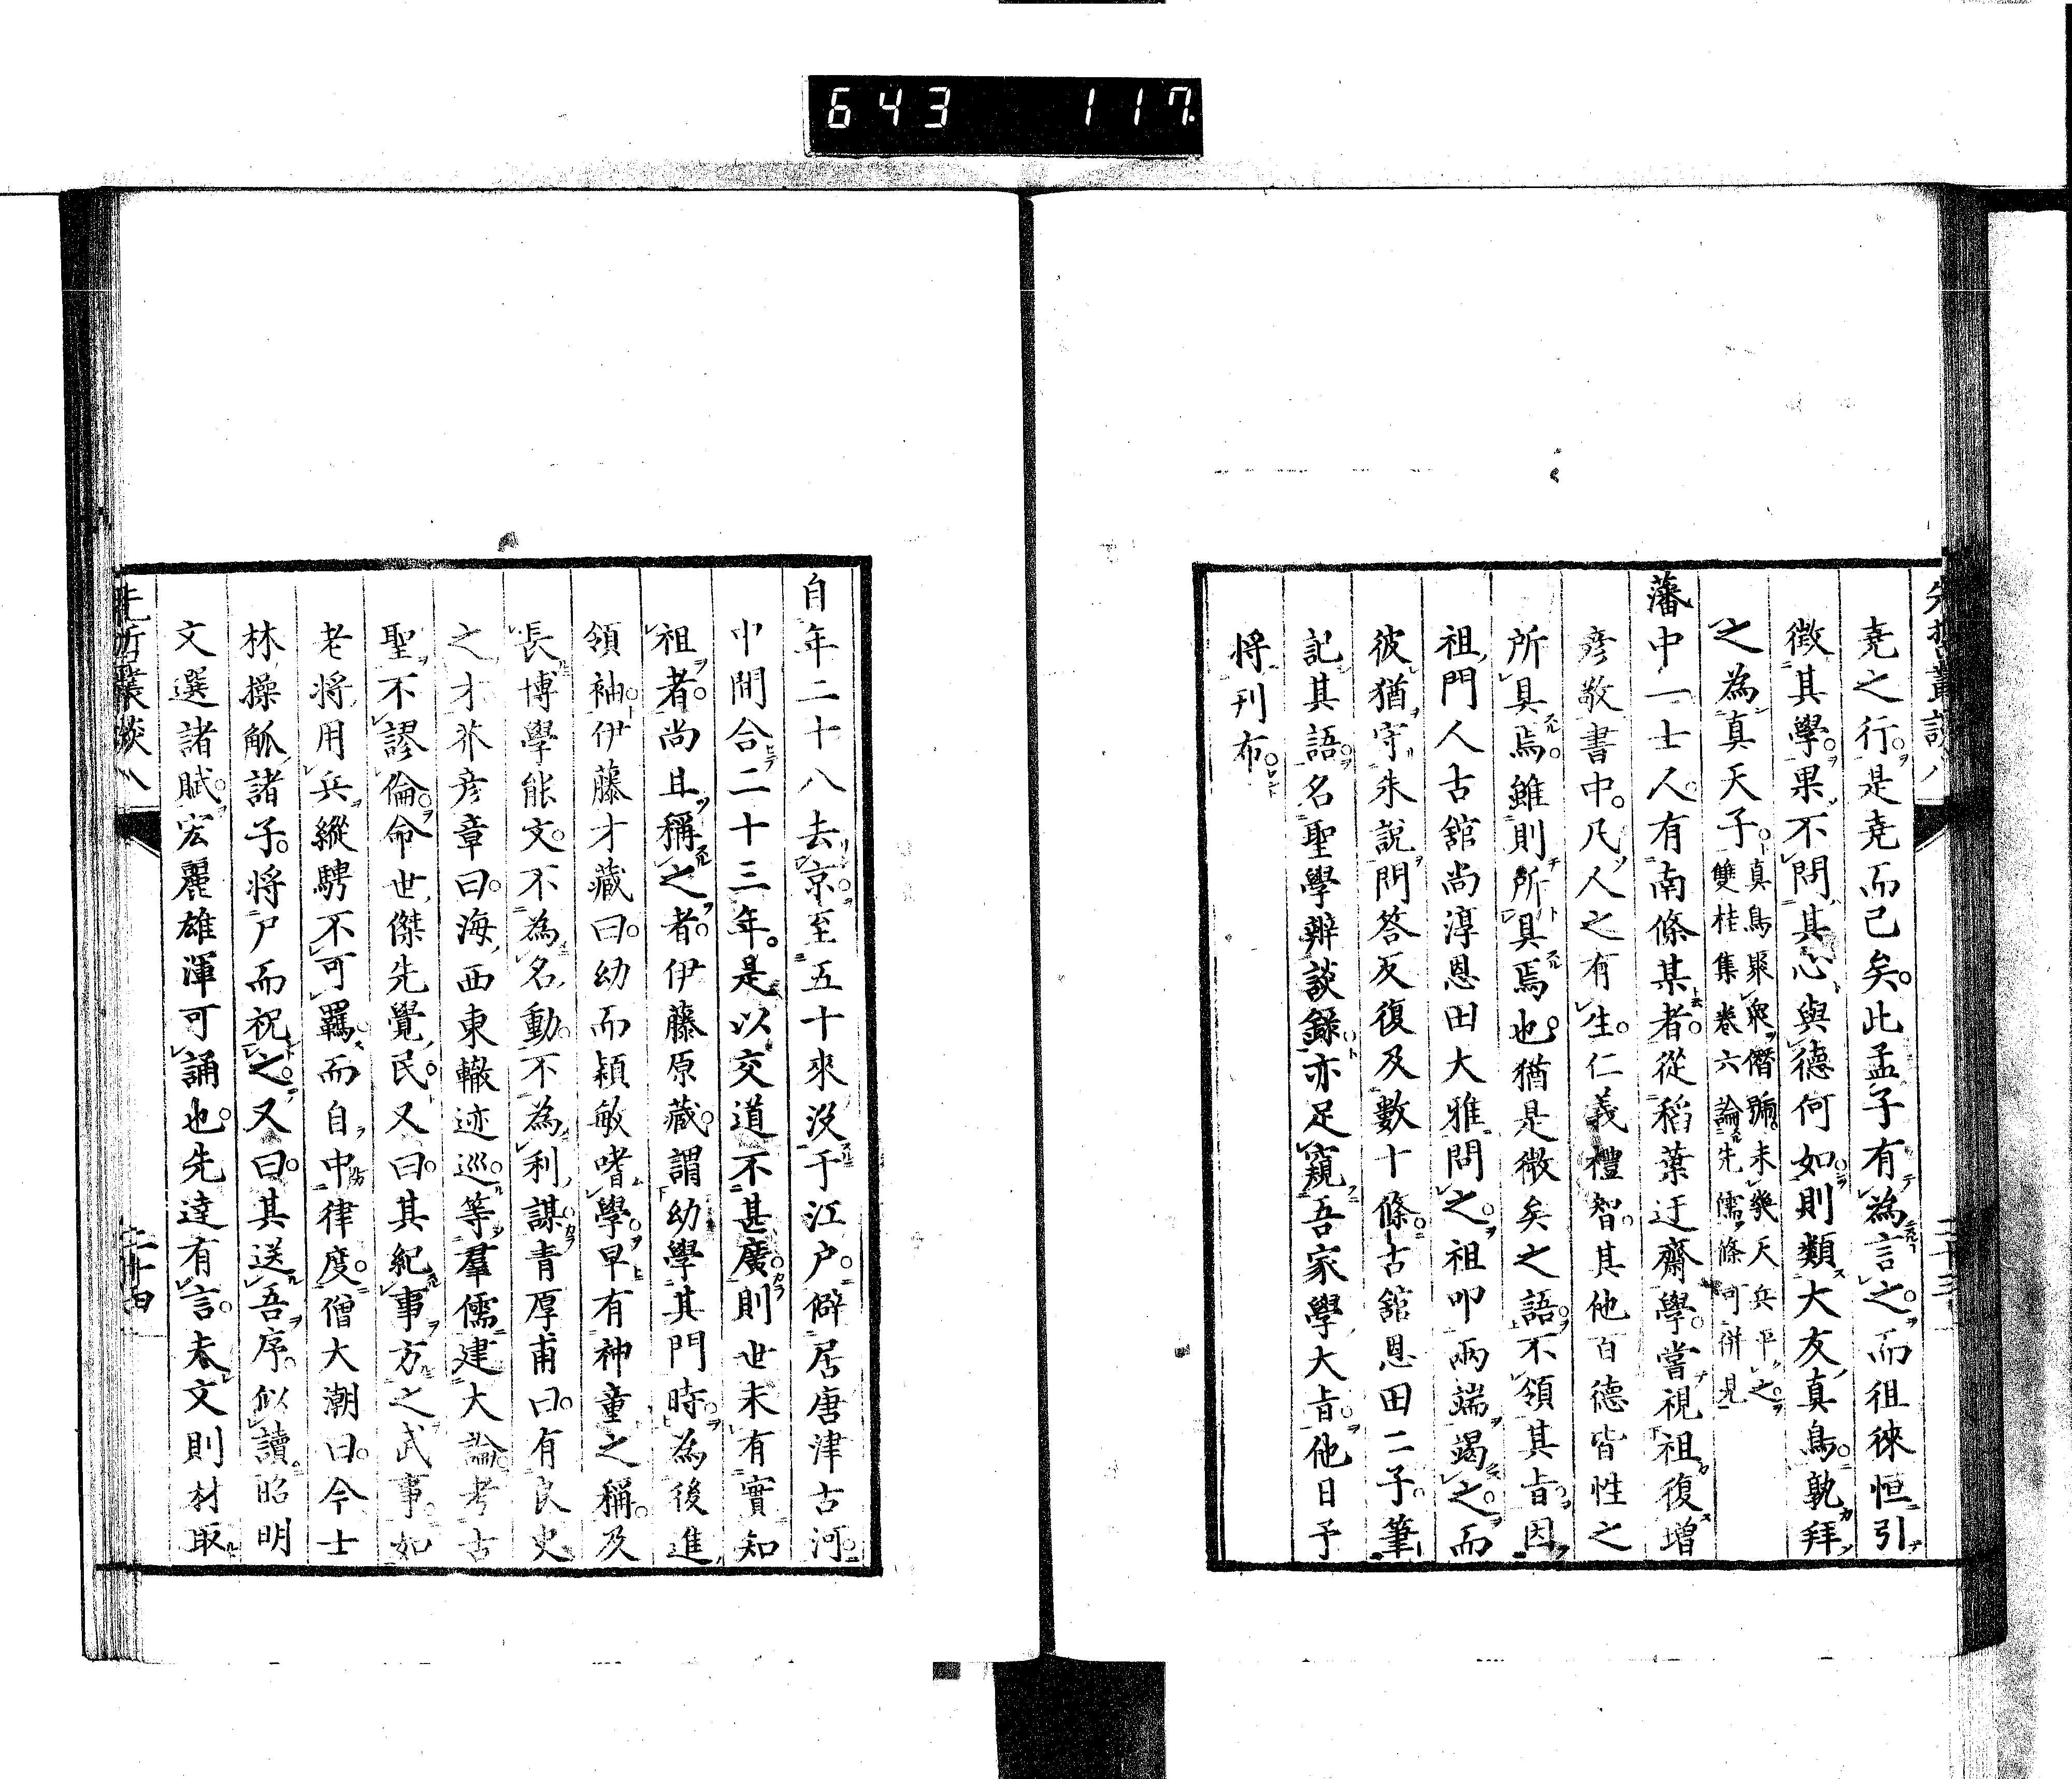 643 117
先哲叢談八 二十三
堯之行是堯而已矣此孟子有為言之而徂徠恒引
徵其學果不問其心與德何如則類大友真鳥孰拜
之為真天子真鳥聚衆僭號未幾天兵平之
雙桂集卷六論先儒條可併見
藩中一士人有南條某者從稻葉迂齋學嘗視祖復增
彥敬書中凡人之有生仁義禮智其他百德皆性之
所具焉雖則所具焉也猶是微矣之語不領其旨因
祖門人古舘尚淳恩田大雅問之祖叩兩端竭之而
彼猶守朱說問答反復及數十條古舘恩田二子筆
記其語名聖學辨談錄亦足窺吾家學大旨他日予
將刊布
自年二十八去京至五十來沒于江戶僻居唐津古河
中間合二十三年是以交道不甚廣則世未有實知
祖者尚且稱之者伊藤原藏謂幼學其門時為後進
領袖伊藤才藏曰幼而穎敏嗜學早有神童之稱及
長博學能文不為名動不為利謀青厚甫曰有良史
之才芥彥章曰海西東轍迹巡等羣儒建大論考古
聖不謬倫命世傑先覺民又曰其紀事方之武事如
老將用兵縱騁不可羈而自中律度僧大潮曰今士
林操觚諸子將尸而祝之又曰其送吾序似讀昭明
文選諸賦宏麗雄渾可誦也先達有言夫文則材取
先哲叢談八 二十四